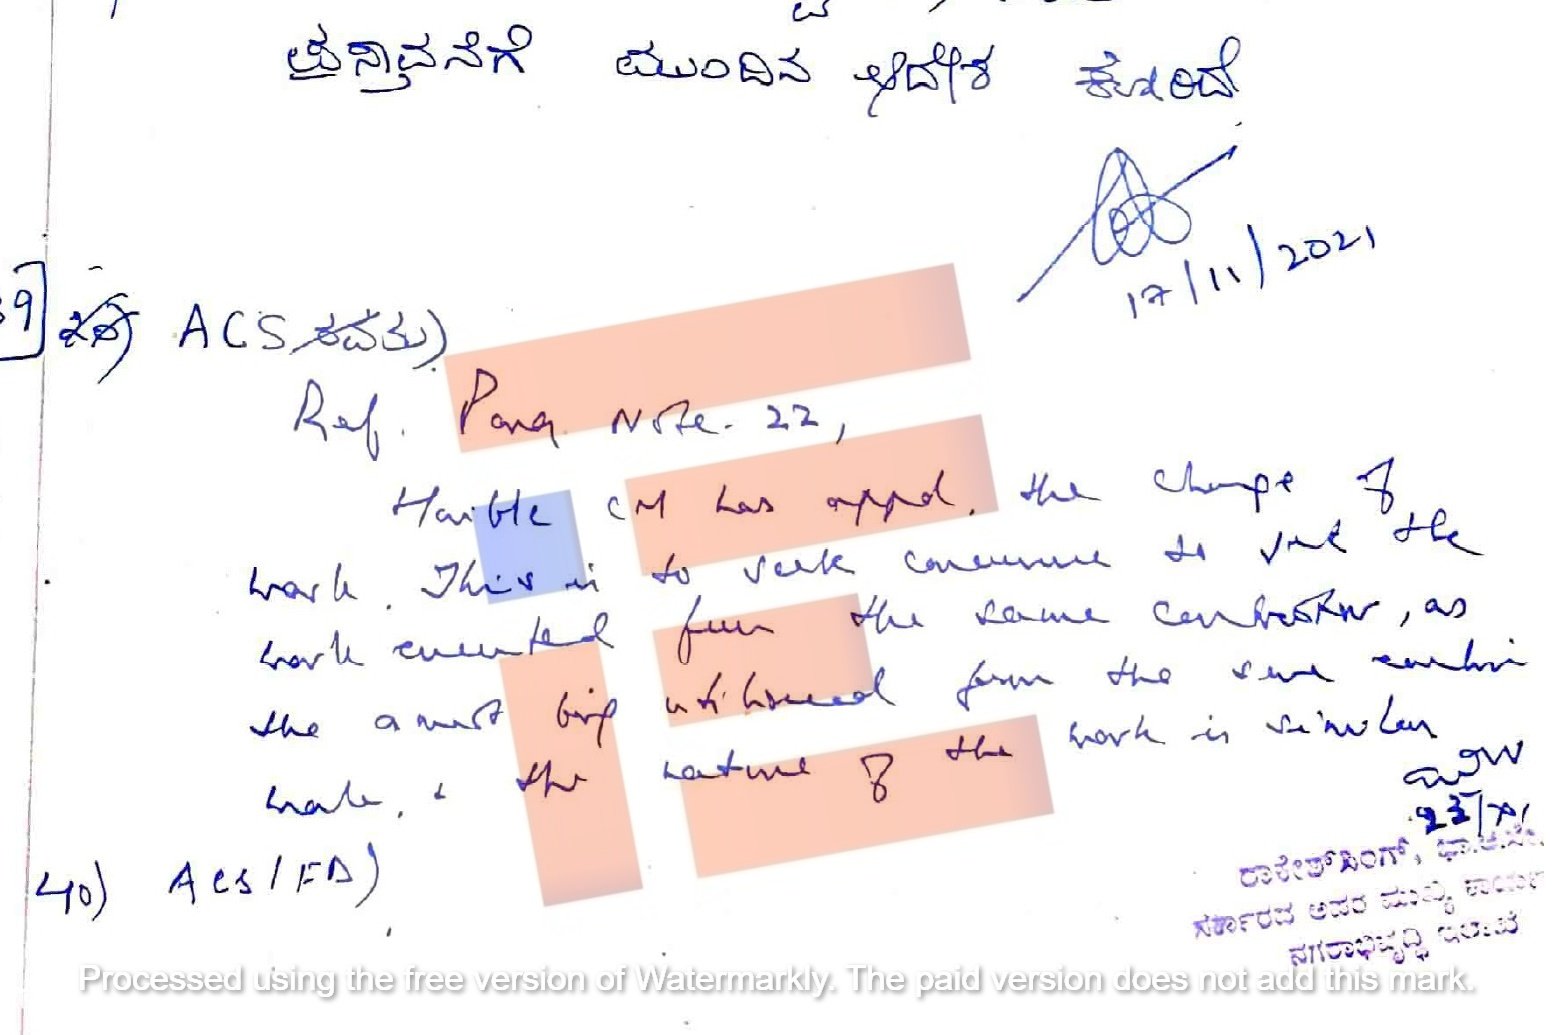 ಪ್ರಸ್ತಾವನೆಗೆ ಮುಂದಿನ ಆದೇಶ ಕೋರಿದೆ
17/11/2021
39 ACS
Ref. Para Note-22,
Hon'ble CM has appd. the change of
work. This is to seek concurrence to get the
work executed from the same contractor, as
the amount being utilised from the same
work, & the nature of the work is similar
23/XI
ರಾಕೇಶ್ ಸಿಂಗ್, ಭಾ.ಆ.ಸೇ.
40) ACS/FD)
ಸರ್ಕಾರದ ಅಪರ ಮುಖ್ಯ
ನಗರಾಭಿವೃದ್ಧಿ ಇಲಾಖೆ
Processed using the free version of Watermarkly. The paid version does not add this mark.